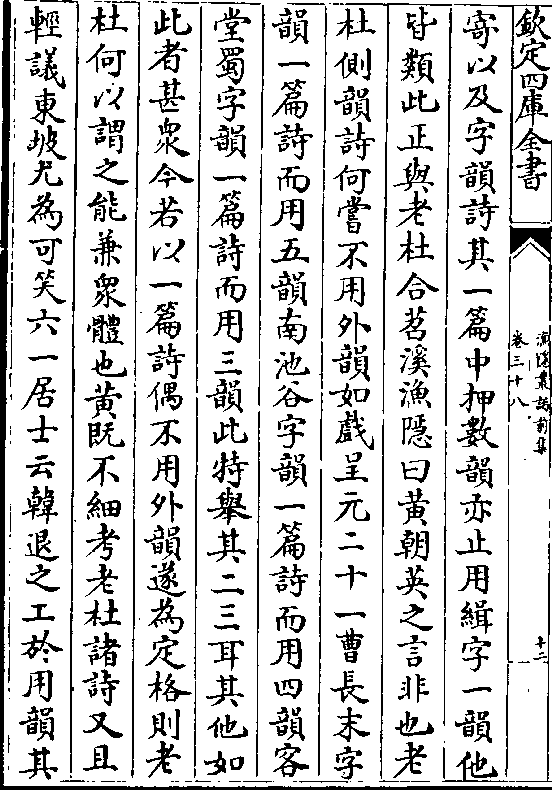 欽定四庫全書
漁隱叢話前集
卷三十八
十二
寄以及字韻詩其一篇中押數韻亦止用緝字一韻他
皆類此正與老杜合苕溪漁隱曰黄朝英之言非也老
杜側韻詩何嘗不用外韻如戲呈元二十一曹長末字
韻一篇詩而用五韻南池谷字韻一篇詩而用四韻客
堂蜀字韻一篇詩而用三韻此特舉其二三耳其他如
此者甚衆今若以一篇詩偶不用外韻遂為定格則老
杜何以謂之能兼衆體也黄既不細考老杜諸詩又且
輕議東坡尤為可笑六一居士云韓退之工於用韻其